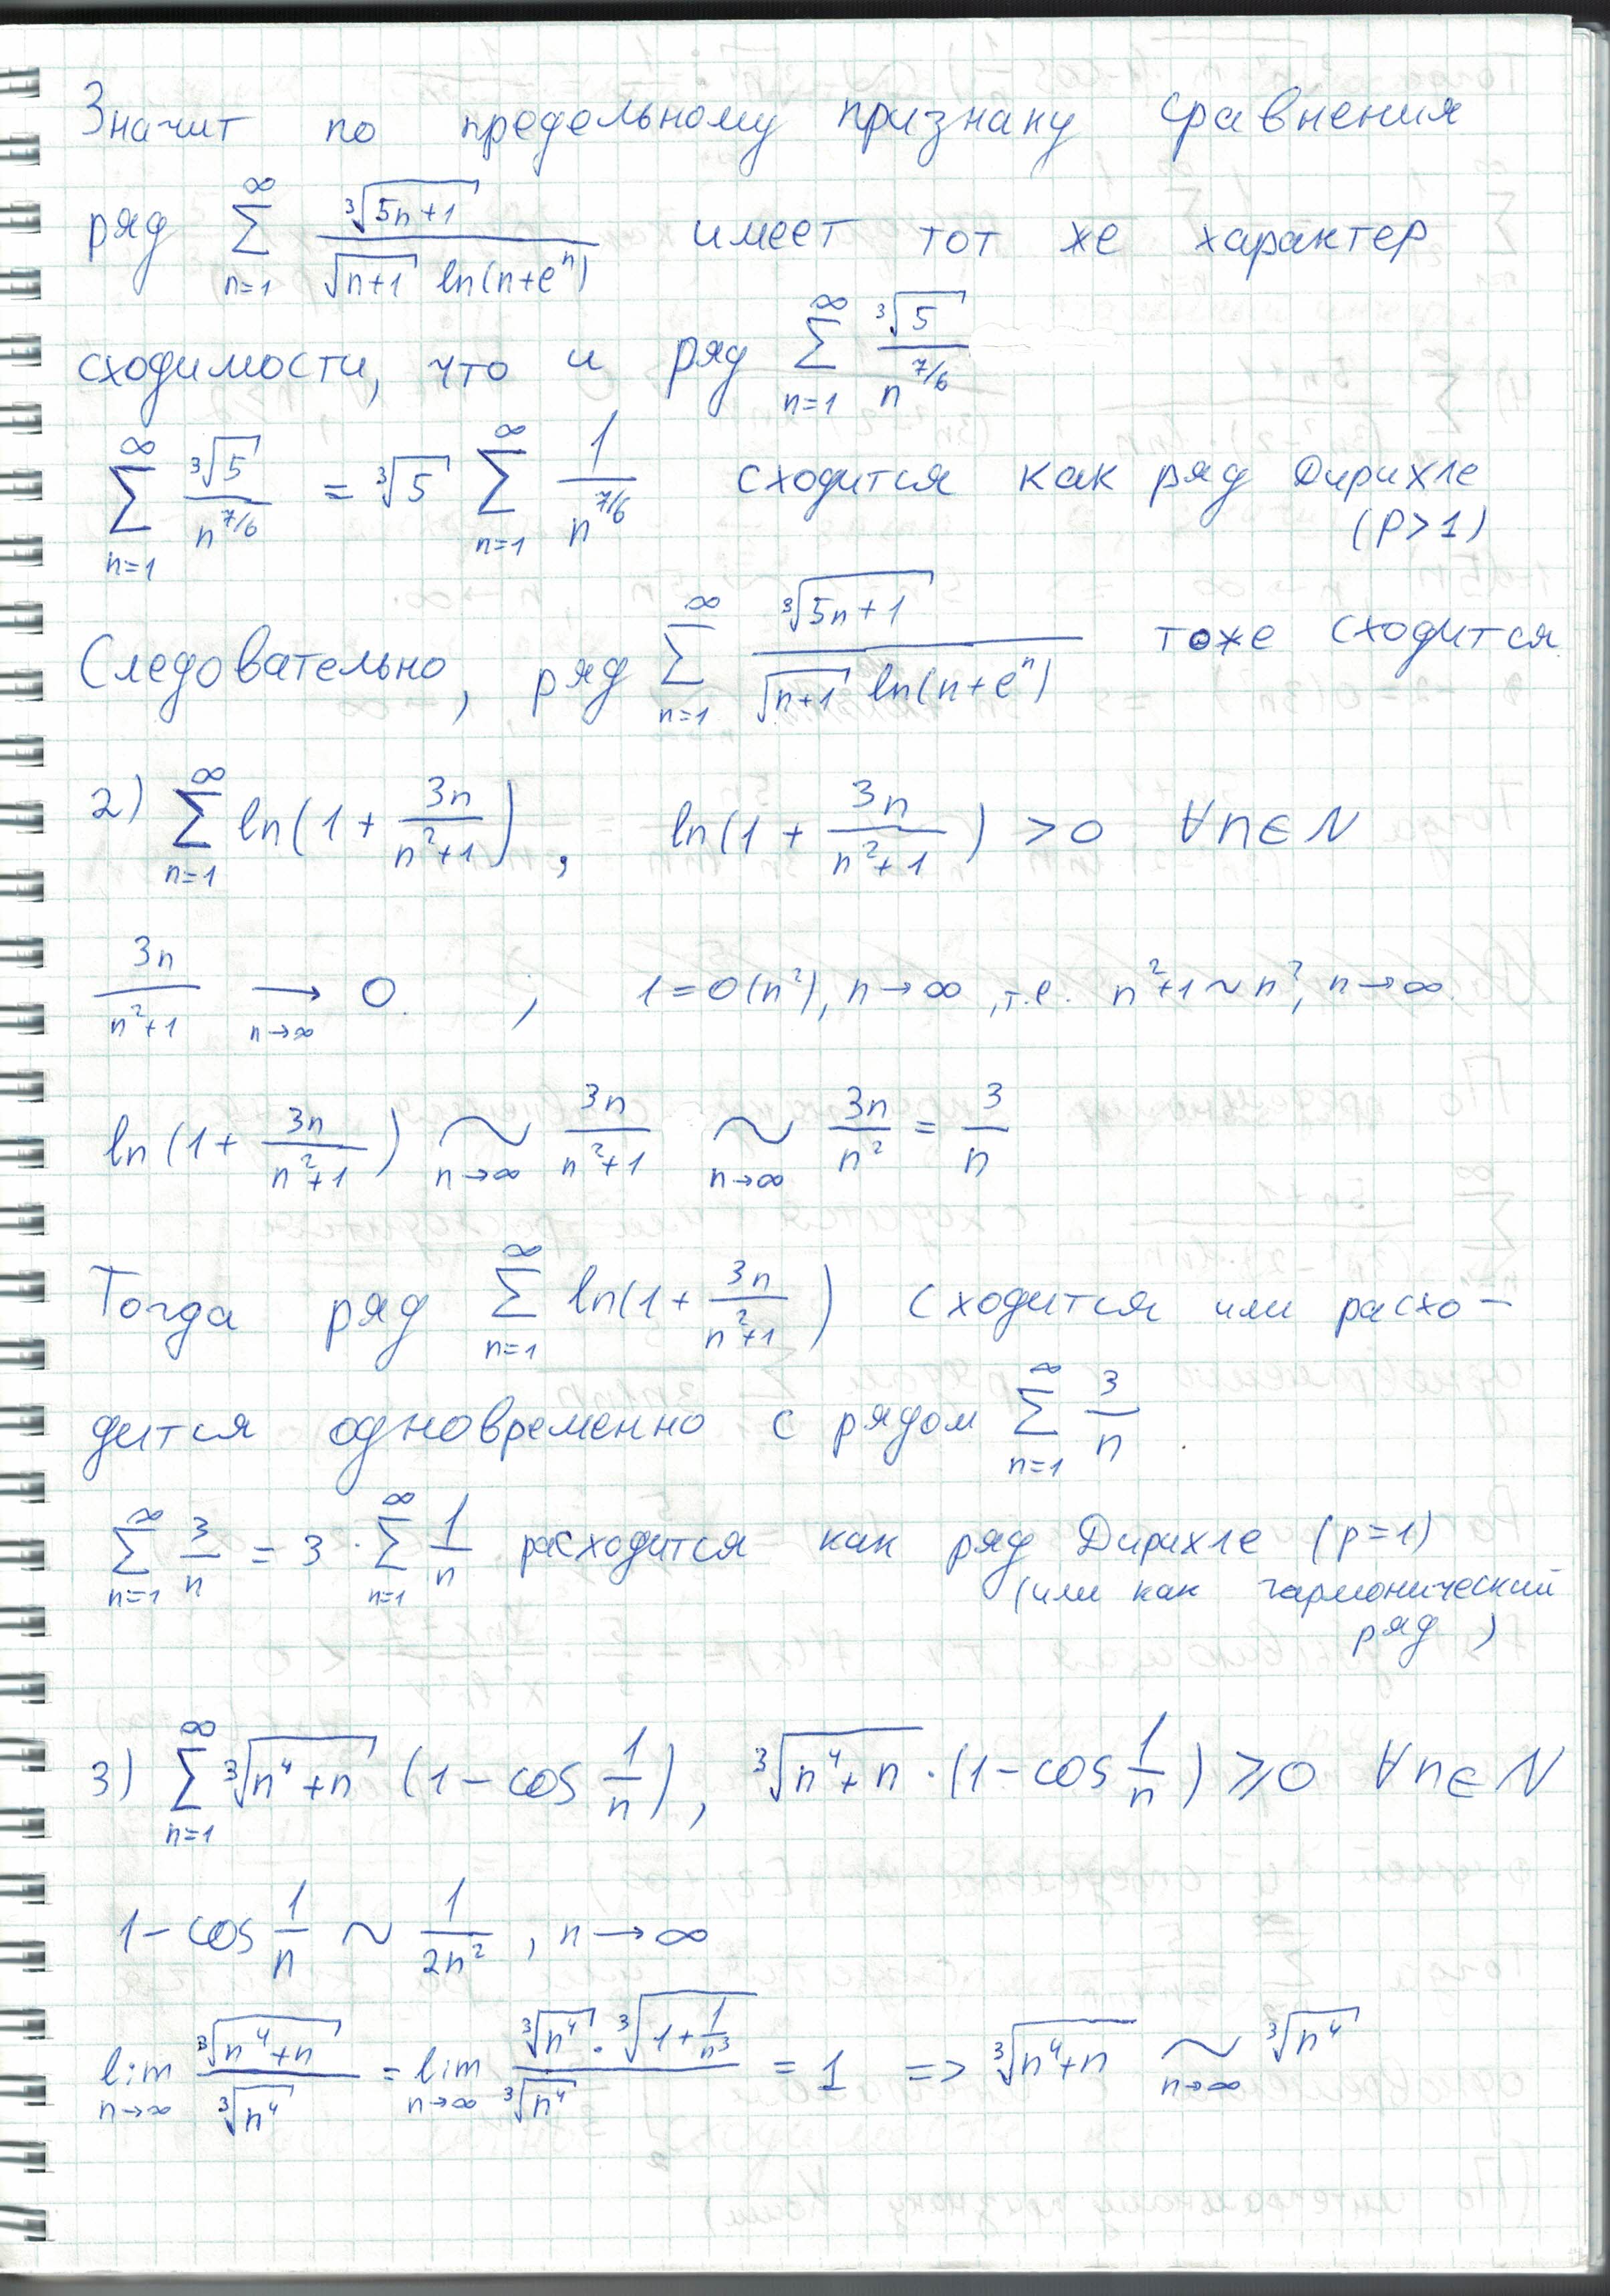 Значит по предельному признаку сравнения
ряд $\sum_{n=1}^{\infty} \frac{\sqrt[3]{5n+1}}{\sqrt{n+1}\,\ln(n+e^n)}$ имеет тот же характер
сходимости, что и ряд $\sum_{n=1}^{\infty} \frac{\sqrt[3]{5}}{n^{7/6}}$
$\sum_{n=1}^{\infty} \frac{\sqrt[3]{5}}{n^{7/6}} = \sqrt[3]{5} \sum_{n=1}^{\infty} \frac{1}{n^{7/6}}$ сходится как ряд Дирихле
(p>1)
Следовательно, ряд $\sum_{n=1}^{\infty} \frac{\sqrt[3]{5n+1}}{\sqrt{n+1}\,\ln(n+e^n)}$ тоже сходится
2) $\sum_{n=1}^{\infty} \ln(1+\frac{3n}{n^2+1})$, $\ln(1+\frac{3n}{n^2+1}) > 0 \quad \forall n \in N$
$\frac{3n}{n^2+1} \underset{n\to\infty}{\longrightarrow} 0.$ ; $1=o(n^2), n\to\infty$, т.е. $n^2+1 \sim n^2, n\to\infty.$
$\ln(1+\frac{3n}{n^2+1}) \underset{n\to\infty}{\sim} \frac{3n}{n^2+1} \underset{n\to\infty}{\sim} \frac{3n}{n^2} = \frac{3}{n}$
Тогда ряд $\sum_{n=1}^{\infty} \ln(1+\frac{3n}{n^2+1})$ сходится или расхо-
дится одновременно с рядом $\sum_{n=1}^{\infty} \frac{3}{n}$.
$\sum_{n=1}^{\infty} \frac{3}{n} = 3 \cdot \sum_{n=1}^{\infty} \frac{1}{n}$ расходится как ряд Дирихле (p=1)
(или как гармонический
ряд)
3) $\sum_{n=1}^{\infty} \sqrt[3]{n^4+n}\,(1-\cos\frac{1}{n})$, $\sqrt[3]{n^4+n} \cdot (1-\cos\frac{1}{n}) \geqslant 0 \quad \forall n \in N$
$1-\cos\frac{1}{n} \sim \frac{1}{2n^2}, n\to\infty$
$\lim_{n\to\infty} \frac{\sqrt[3]{n^4+n}}{\sqrt[3]{n^4}} = \lim_{n\to\infty} \frac{\sqrt[3]{n^4} \cdot \sqrt[3]{1+\frac{1}{n^3}}}{\sqrt[3]{n^4}} = 1 \Rightarrow \sqrt[3]{n^4+n} \underset{n\to\infty}{\sim} \sqrt[3]{n^4}$